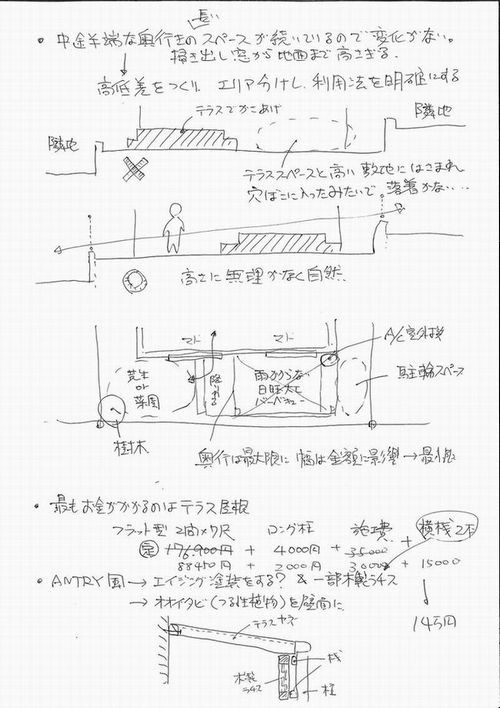 長い
・中途半端な奥行きのスペースが続いているので変化がない。
掃き出し窓から地面まで高さぎる。
高低差をつくり、エリア分けし、利用法を明確にする
テラスでかさあげ
隣地
隣地
テラススペースと高い敷地にはさまれ
穴ぼこに入ったみたいで落着かない…
高さに無理がなく自然
マド
マド
A/C室外機
芝生
or
菜園
降りる
雨かからない
日曜大工
バーベキュー
駐輪スペース
樹木
奥行は最大限に 幅は金額に影響→最低
・最もお金がかかるのはテラス屋根
フラット型 2間×7尺 ロング柱 施工費 横桟2本
定 176.900円 + 4000円 + 35000 +
88450円 + 2000円 30000 + 15000
14万円
・ANTRY風 → エイジング塗装をする? & 一部木製ラチス
→ オオイタビ(つる性植物)を壁面に
テラスヤネ
木製
ラチス
桟
柱